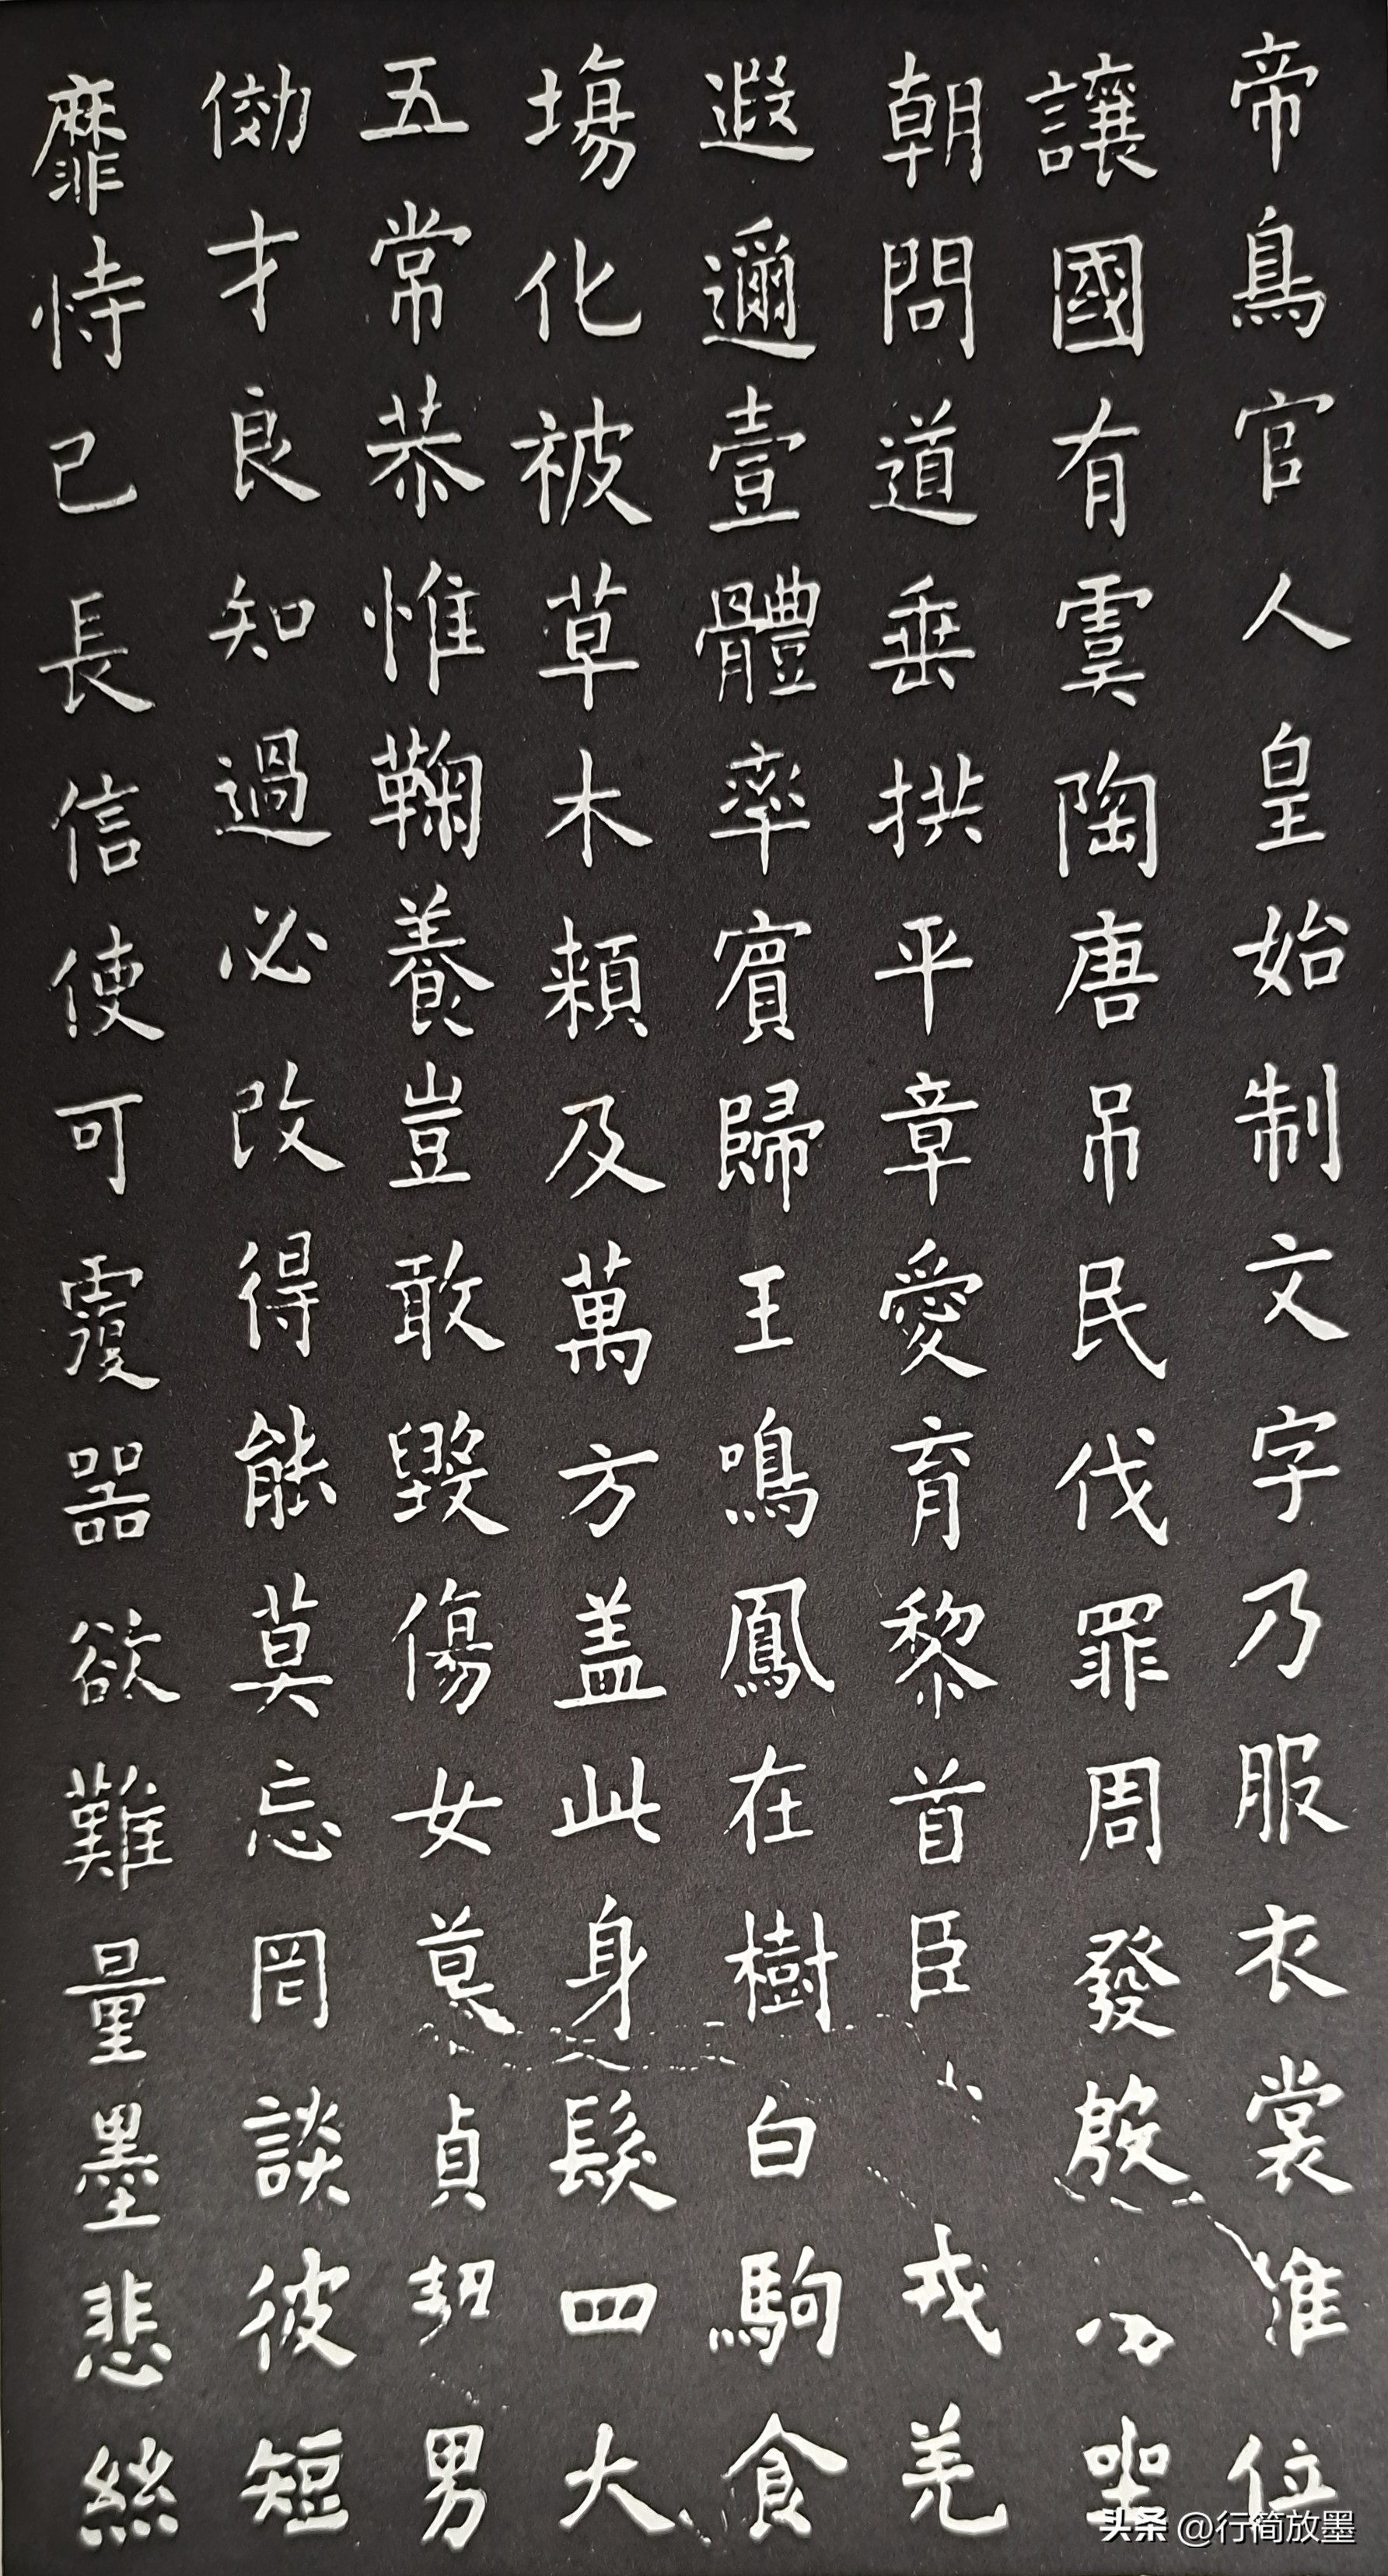 帝鳥官人皇始制文字乃服衣裳位
讓國有虞陶唐吊民伐罪周發殷坐
朝問道垂拱平章愛育黎首臣戎羌
遐邇壹體率賓歸王鳴鳳在樹白駒食
塲化被草木賴及萬方盖此身髮四大
五常恭惟鞠養豈敢毀傷女慕貞絜男
俲才良知過必改得能莫忘罔談彼短
靡恃己長信使可覆器欲難量墨悲絲
头条 @行简放墨